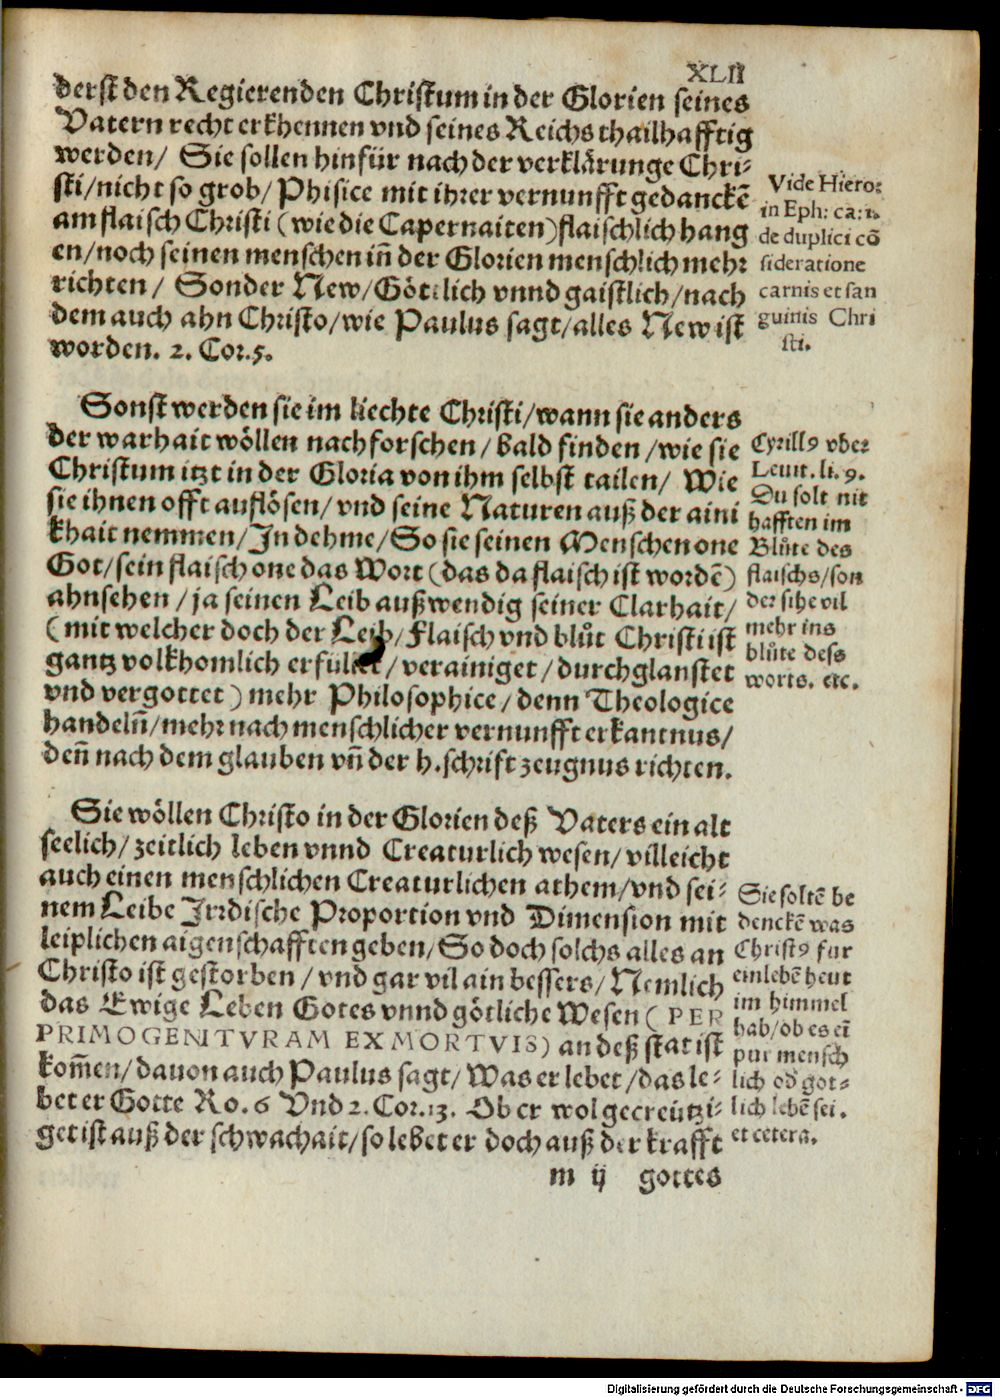 XLII
derst den Regierenden Christum in der Glorien seines
Vatern recht erkhennen vnd seines Reichs thailhafftig
werden/ Sie sollen hinfür nach der verklärunge Chri-
sti/nicht so grob/ Phisice mit ihrer vernunfft gedanckē
am flaisch Christi (wie die Capernaiten) flaischlich hang
en/noch seinen menschen iñ der Glorien menschlich mehr
richten/ Sonder New/Götlich vnnd gaistlich/nach
dem auch ahn Christo/wie Paulus sagt/alles New ist
worden. 2. Cor.5.
Vide Hiero:
in Eph: ca: 1.
de duplici cō
sideratione
carnis et san
guinis Chri
sti.
Sonst werden sie im liechte Christi/wann sie anders
der warhait wöllen nachforschen/bald finden/wie sie
Christum itzt in der Gloria von ihm selbst tailen/ Wie
sie ihnen offt auflösen/vnd seine Naturen auß der aini
khait nemmen/In dehme/So sie seinen Menschen one
Got/sein flaisch one das Wort (das da flaisch ist wordē)
ahnsehen/ja seinen Leib außwendig seiner Clarhait/
(mit welcher doch der Leib/Flaisch vnd blůt Christi ist
gantz volkhomlich erfüllet/verainiget/durchglanstet
vnd vergottet) mehr Philosophice/denn Theologice
handelñ/mehr nach menschlicher vernunfft erkantnus/
deñ nach dem glauben vñ der h.schrift zeugnus richten.
Cyrillꝰ vber
Leuit. li. 9.
Du solt nit
hafften im
Blůte des
flaischs/son
der sihe vil
mehr ins
blůte dess
worts. etc.
Sie wöllen Christo in der Glorien deß Vaters ein alt
seelich/zeitlich leben vnnd Creaturlich wesen/villeicht
auch einen menschlichen Creaturlichen athem/vnd sei-
nem Leibe Irrdische Proportion vnd Dimension mit
leiplichen aigenschafften geben/So doch solchs alles an
Christo ist gestorben/vnd gar vil ain bessers/Nemlich
das Ewige Leben Gotes vnnd götliche Wesen (PER
PRIMOGENITVRAM EX MORTVIS) an deß stat ist
kom̃en/dauon auch Paulus sagt/Was er lebet/das le-
bet er Gotte Ro. 6 Vnd 2. Cor.13. Ob er wol gecreützi-
get ist auß der schwachait/so lebet er doch auß der krafft
Sie soltē be
denckē was
Christꝰ fur
ein lebē heut
im himmel
hab/ob es eī
pur mensch
lich od got-
lich lebē sei.
et cetera.
m ij gottes
Digitalisierung gefördert durch die Deutsche Forschungsgemeinschaft - DFG